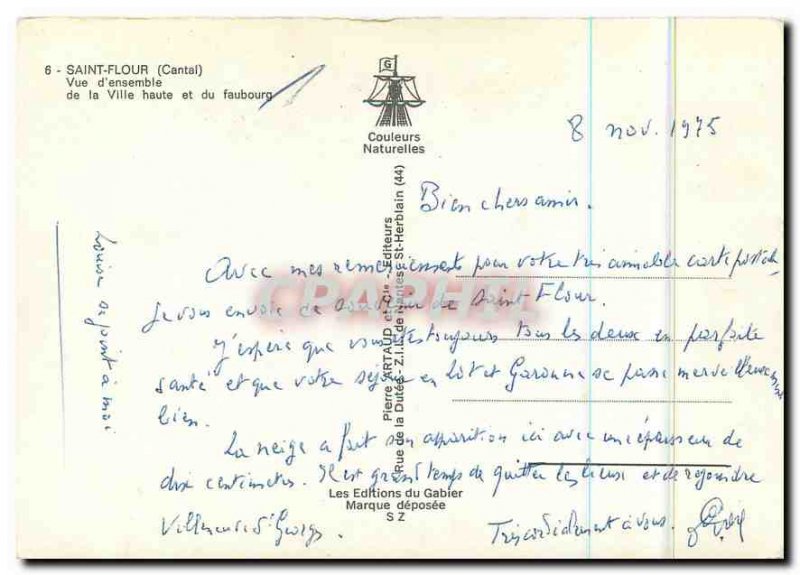 6 - SAINT-FLOUR (Cantal)
Vue d'ensemble
de la Ville haute et du faubourg
G
Couleurs
Naturelles
8 nov. 1975
Bien chers amis.
Avec mes remerciements pour votre très aimable carte postale
je vous envoie ce souvenir de Saint Flour.
J'espère que vous êtes toujours tous les deux en parfaite
santé et que votre séjour en Lot et Garonne se passe merveilleusement
bien.
La neige a fait son apparition ici avec une épaisseur de
dix centimètres. Il est grand temps de quitter les lieux et de rejoindre
Villeneuve St Georges.
Très cordialement à vous.
Louise se joint à moi
Pierre ARTAUD et Cie - Editeurs
Rue de la Dutée - Z.I.L. de Nantes - St-Herblain (44)
Les Editions du Gabier
Marque déposée
S Z
CPAPHIL